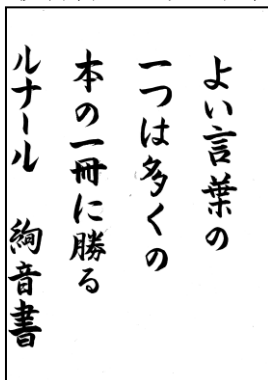 よい言葉の
一つは多くの
本の一冊に勝る
ルナール 絢音書